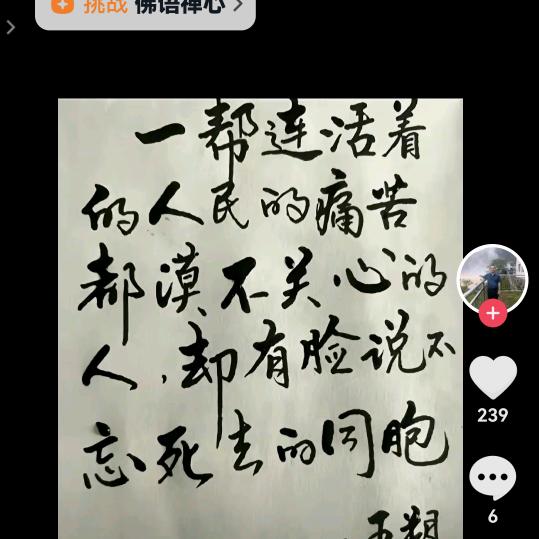 挑战 佛语禅心
一帮连活着
的人民的痛苦
都漠不关心的
人，却有脸说不
忘死去的同胞
王朔
239
6